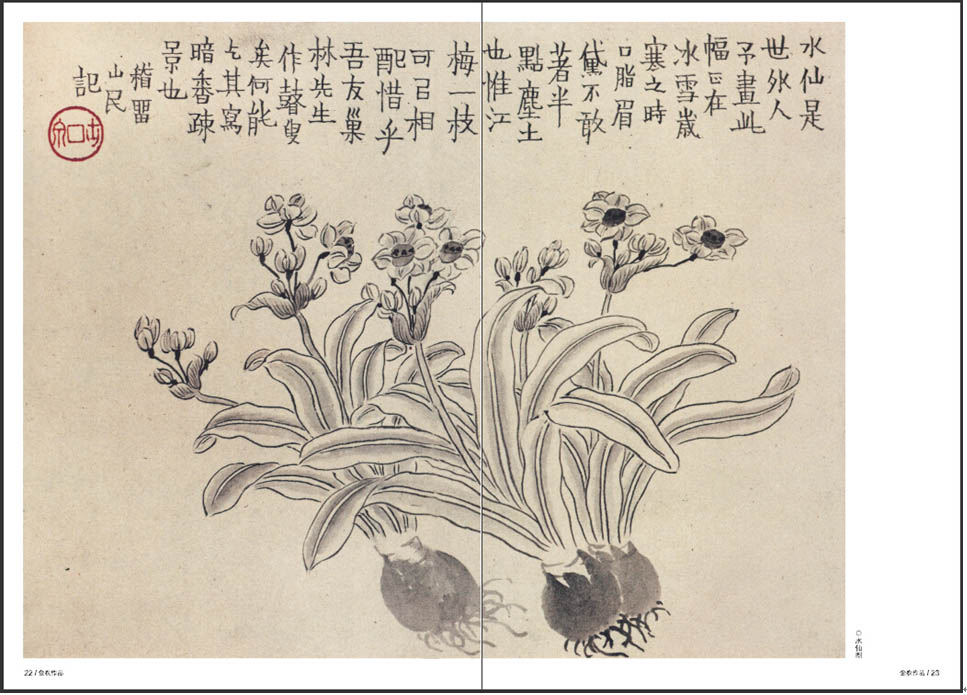 水仙是
世外人
予畫此
幅正在
冰雪歲
寒之時
口脂眉
黛不敢
著半
點塵土
也惟江
梅一枝
可㠯相
配惜乎
吾友巢
林先生
作聾叟
矣何能
乞其寫
暗香疎
景也
稽畱
山民
記
◎水仙图
22 / 金农作品
金农作品 / 23